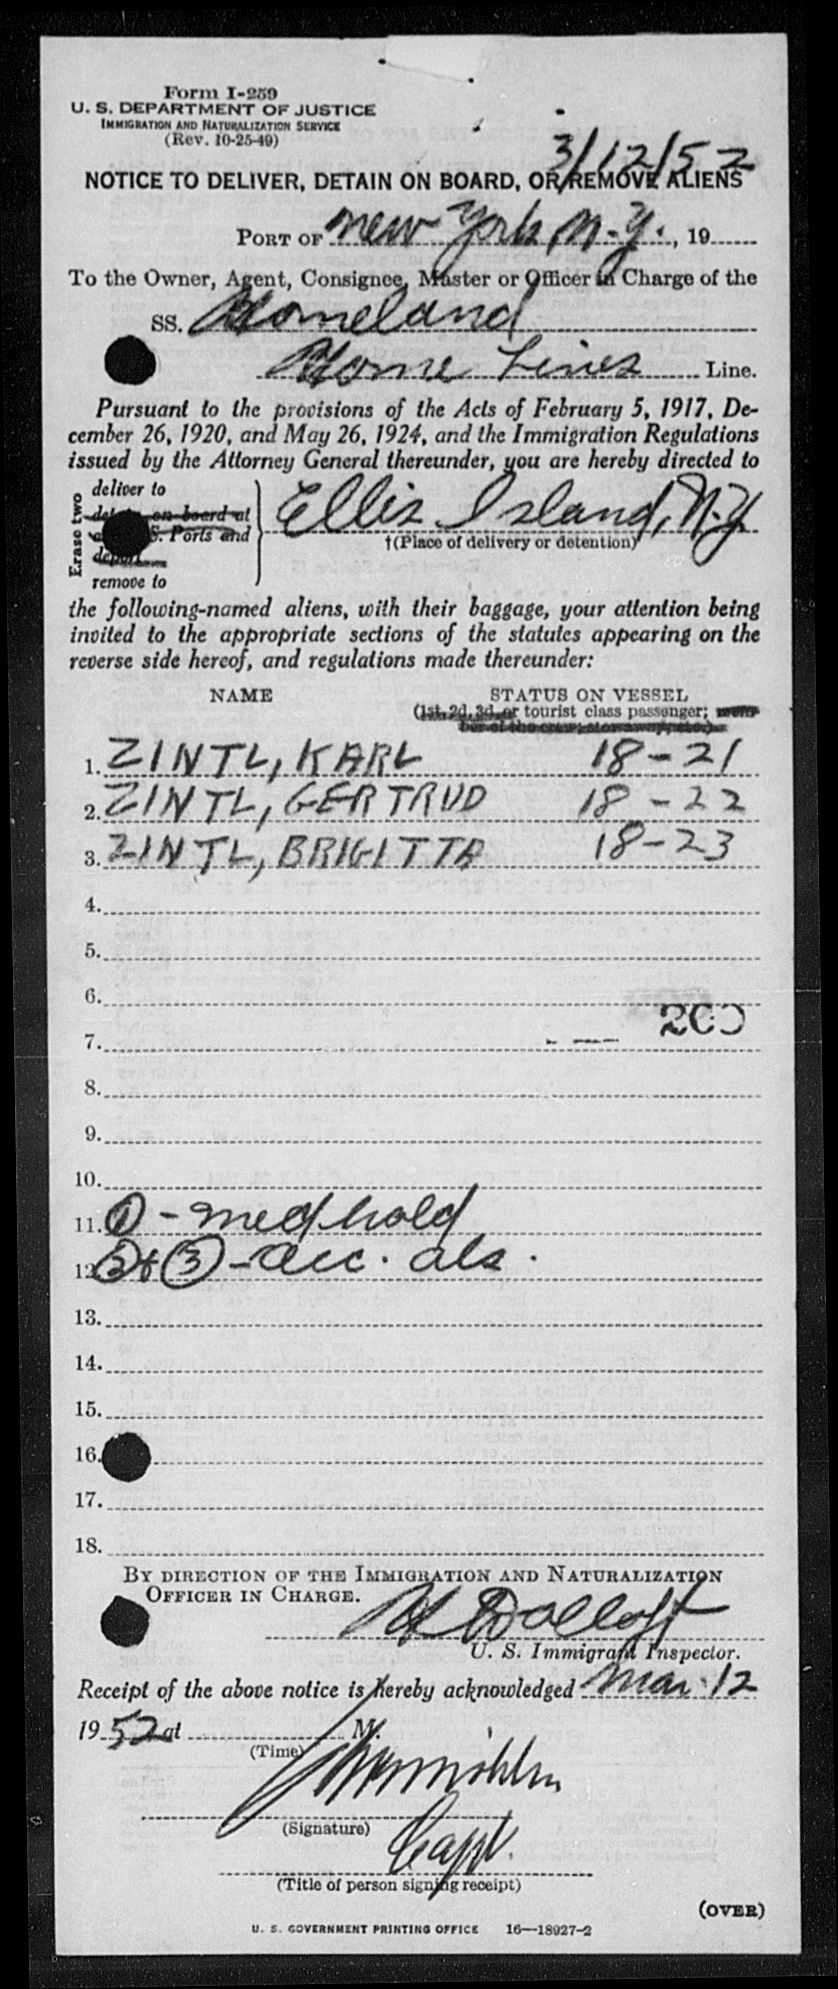 Form I-259
U. S. DEPARTMENT OF JUSTICE
IMMIGRATION AND NATURALIZATION SERVICE
(Rev. 10-25-49)
3/12/52
NOTICE TO DELIVER, DETAIN ON BOARD, OR REMOVE ALIENS
PORT OF New York, N.Y., 19
To the Owner, Agent, Consignee, Master or Officer in Charge of the
SS. Homeland
Home Lines Line.
Pursuant to the provisions of the Acts of February 5, 1917, De-
cember 26, 1920, and May 26, 1924, and the Immigration Regulations
issued by the Attorney General thereunder, you are hereby directed to
Erase two
deliver to
on board at
S. Ports and
depart
remove to
Ellis Island, N.Y.
†(Place of delivery or detention)
the following-named aliens, with their baggage, your attention being
invited to the appropriate sections of the statutes appearing on the
reverse side hereof, and regulations made thereunder:
NAME STATUS ON VESSEL
(1st, 2d, 3d, or tourist class passenger; mem-
ber of the crew; stowaway, etc.)
1. ZINTL, KARL 18-21
2. ZINTL, GERTRUD 18-22
3. ZINTL, BRIGITTA 18-23
4.
5.
6.
200
7.
8.
9.
10.
11. ① - med hold
12. ② + ③ - acc. als.
13.
14.
15.
16.
17.
18.
BY DIRECTION OF THE IMMIGRATION AND NATURALIZATION
OFFICER IN CHARGE.
U. S. Immigrant Inspector.
Receipt of the above notice is hereby acknowledged Mar. 12
1952 at M.
(Time)
(Signature)
Capt.
(Title of person signing receipt)
(OVER)
U. S. GOVERNMENT PRINTING OFFICE 16—18927-2